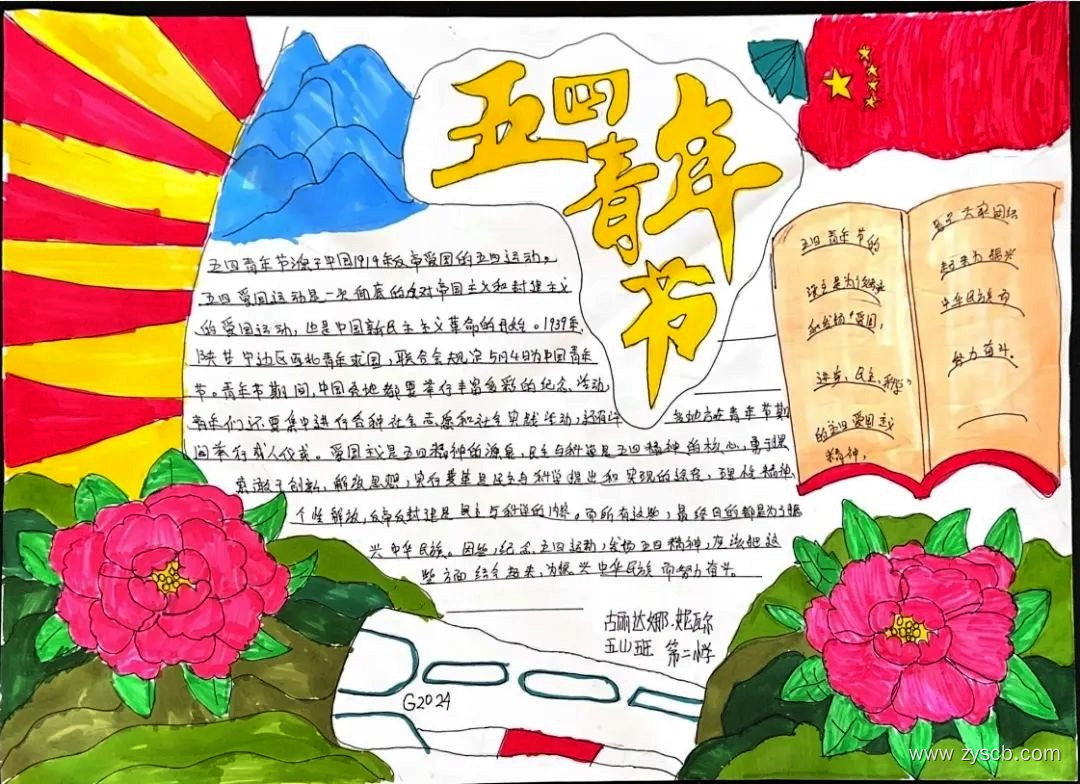 五四青年节
五四青年节源于中国1919年反帝爱国的五四运动。
五四爱国运动是一次彻底的反对帝国主义和封建主义
的爱国运动，也是中国新民主主义革命的开始。1939年，
陕甘宁边区西北青年救国，联合会规定5月4日为中国青年
节。青年节期间，中国各地都要举行丰富多彩的纪念活动，
青年们还要集中进行各种社会志愿和社会实践活动，还有许 多地方在青年节期
间举行成人仪式。爱国主义是五四精神的源泉，民主与科学是五四精神的核心，勇于探
索敢于创新，解放思想，实行变革是民主与科学提出和实现的途径，理性精神，
个性解放，反帝反封建是民主与科学的内容。而所有这些，最终目的都是为了振
兴中华民族。因些，纪念五四运动，发扬五四精神，应该把这
些方面结合起来，为振兴中华民族而努力奋斗。
五四青年节的
设立是为了继承
和发扬"爱国，
进步，民主，科学"
的五四爱国主义
精神，
大家团结
起来为振兴
中华民族而
努力奋斗。
古丽达娜.
第二小学
G2024
www.zyscb.com